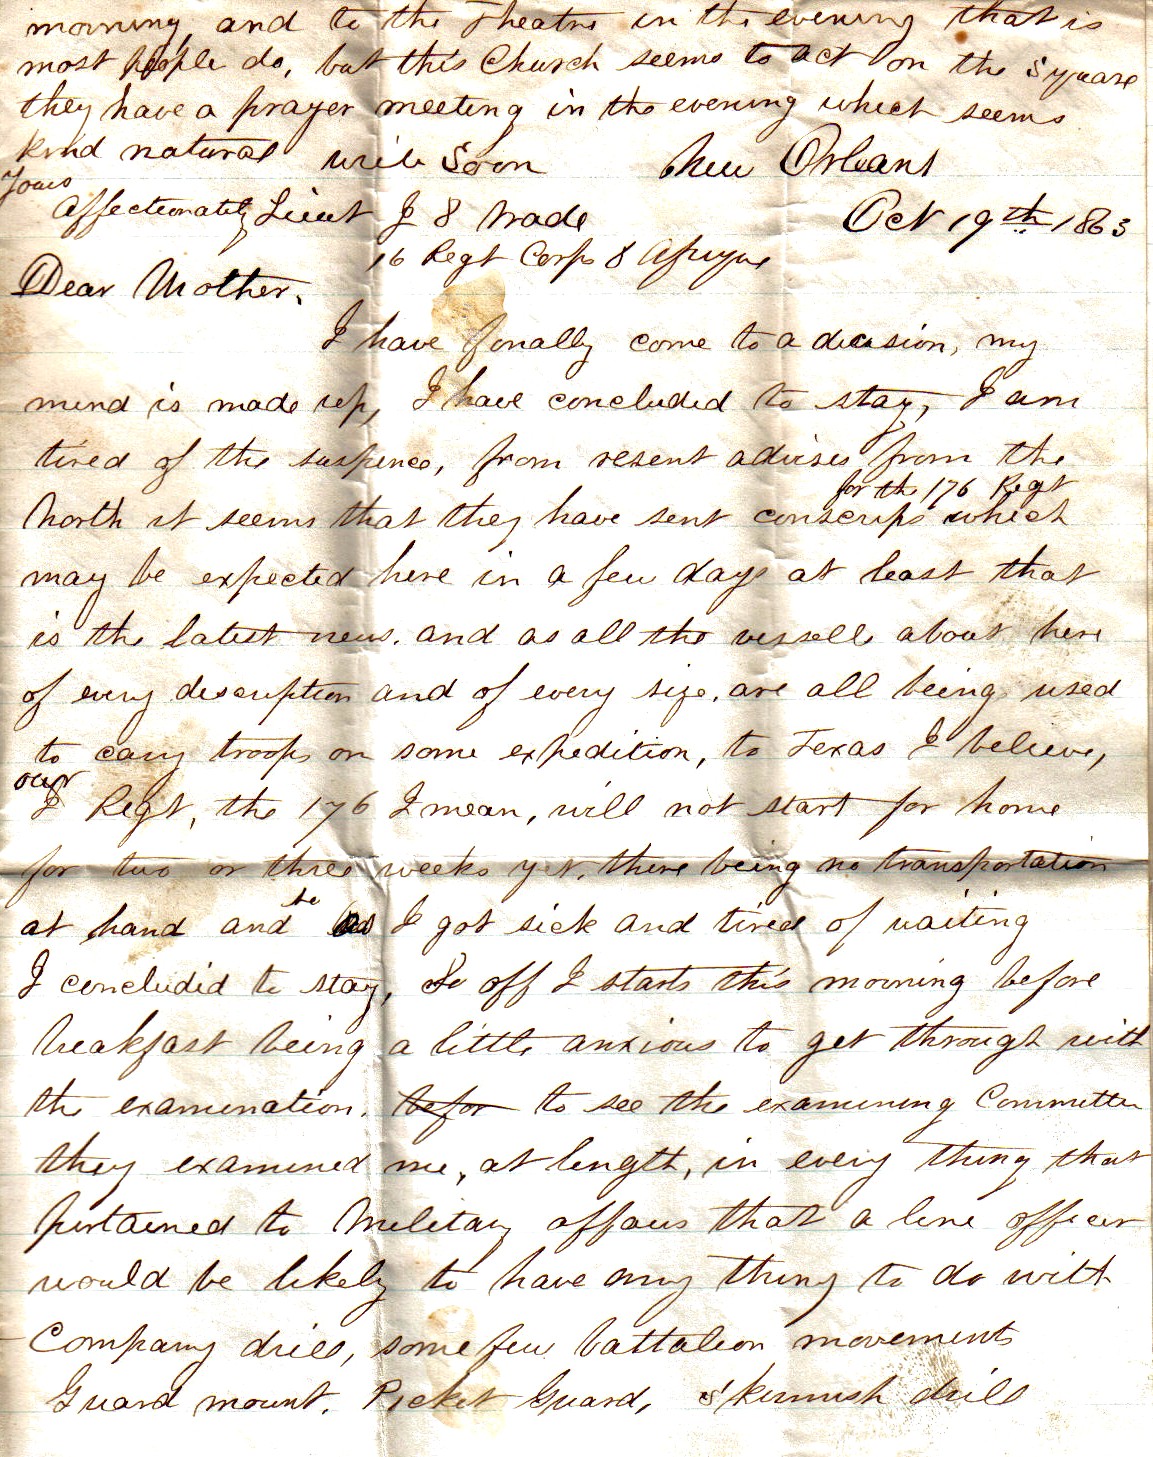 morning, and to the Theatre in the evening that is
most people do, but this Church seems to act on the square
they have a prayer meeting in the evening which seems
kind natural write Soon New Orleans
Yours
Affectionately Lieut J S Wade Oct 19th 1863
16 Regt Corps d Afrique
Dear Mother.
I have finally come to a decision, my
mind is made up, I have concluded to stay, I am
tired of the suspence, from resent advises from the
for the 176 Regt
North it seems that they have sent conscrips which
may be expected here in a few days at least that
is the latest news. and as all the vessells about here
of every description and of every size, are all being used
to cary troops on some expedition, to Texas I believe,
our
Regt, the 176 I mean, will not start for home
for two or three weeks yet, there being no transportation
at hand and I got sick and tired of waiting
I concluded to stay, So off I starts this morning before
breakfast being a little anxious to get through with
the examination. befor to see the examining Committee
they examined me, at length, in every thing that
pertained to Military affairs that a line officer
would be likely to have any thing to do with
Company drill, some few battalion movements
Guard mount. Picket Guard, Skirmish drill